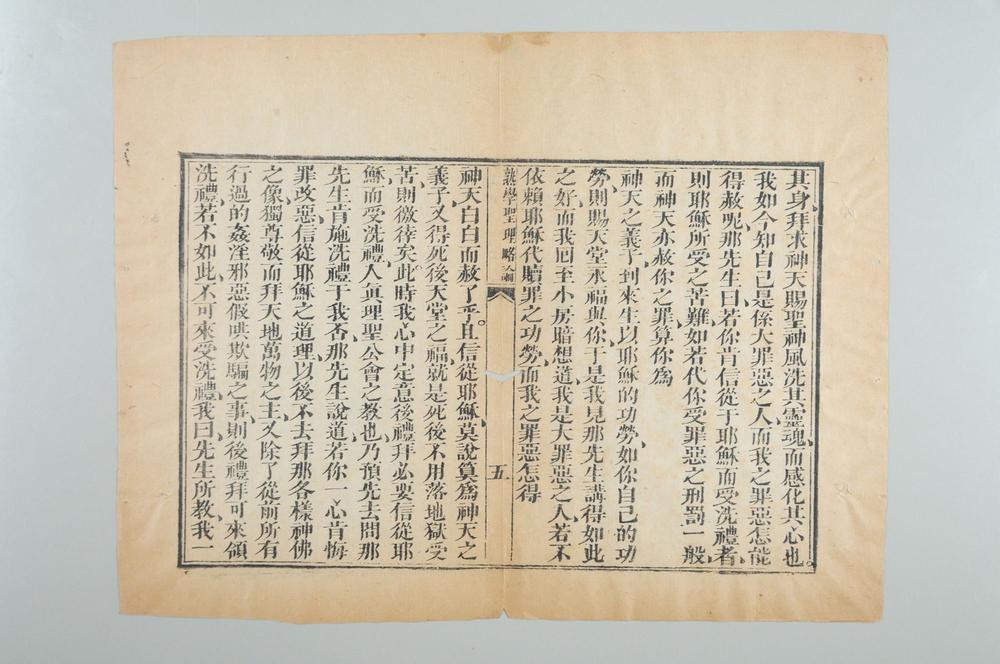 其身拜求神天賜聖神風洗其靈魂而感化其心也。
我如今知自己是係大罪惡之人而我之罪惡怎能
得赦呢那先生曰若你肯信從于耶穌而受洗禮者
則耶穌所受之苦難如若代你受罪惡之刑罰一般
而神天亦赦你之罪算你爲
神天之義子到來生以耶穌的功勞如你自己的功
勞則賜天堂永福與你于是我見那先生講得如此
之好而我回至小房暗想道我是大罪惡之人若不
依賴耶穌代贖罪之功勞而我之罪惡怎得
熟學聖理略論
五
神天白白而赦了乎。且信從耶穌莫說算爲神天之
義子又得死後天堂之福就是死後不用落地獄受
苦則微倖矣。此時我心中定意後禮拜必要信從耶
穌而受洗禮人眞理聖公會之教也乃預先去問那
先生肯施洗禮于我否那先生說道若你一心肯悔
罪改惡信從耶穌之道理以後不去拜那各樣神佛
之像獨尊敬而拜天地萬物之主又除了從前所有
行過的姦淫邪惡假哄欺騙之事則後禮拜可來領
洗禮若不如此不可來受洗禮我曰先生所教我一